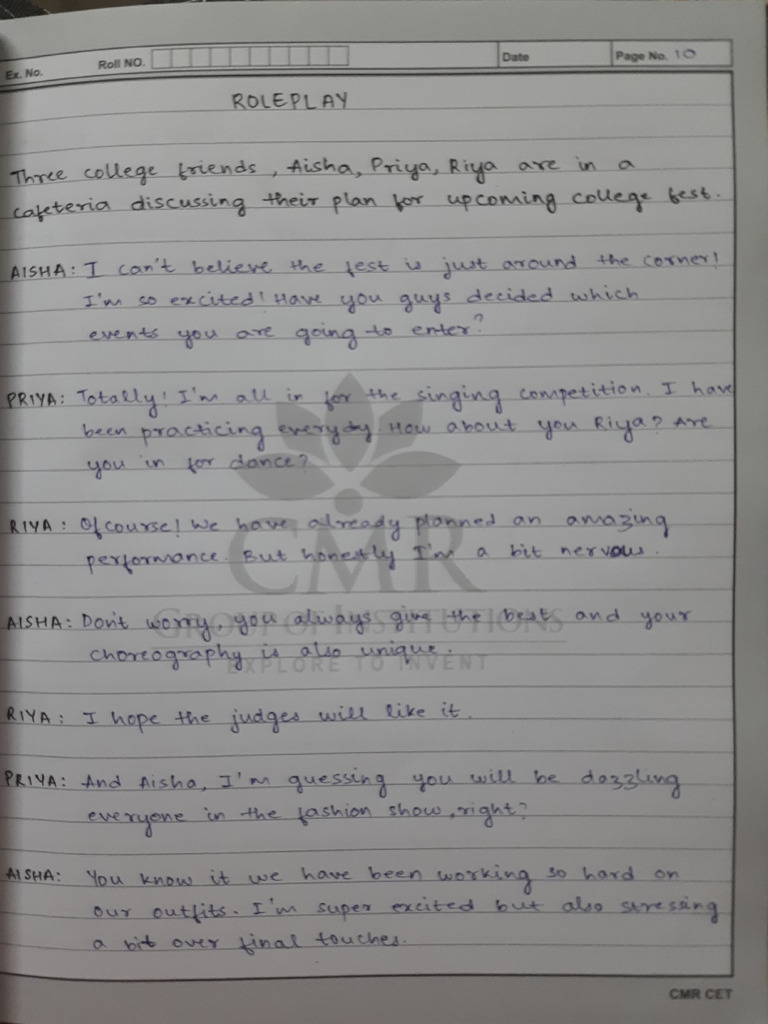 Ex. No. Roll NO. Date Page No. 10
ROLEPLAY
Three college friends, Aisha, Priya, Riya are in a
cafeteria discussing their plan for upcoming college fest.
AISHA: I can't believe the fest is just around the corner!
I'm so excited! Have you guys decided which
events you are going to enter?
PRIYA: Totally! I'm all in for the singing competition. I have
been practicing everydy. How about you Riya? Are
you in for dance?
RIYA: Ofcourse! We have already planned an amazing
performance. But honestly I'm a bit nervous.
CMR
AISHA: Don't worry, you always give the best and your
GROUP OF INSTITUTIONS
choreography is also unique.
EXPLORE TO INVENT
RIYA: I hope the judges will like it.
PRIYA: And Aisha, I'm guessing you will be dazzling
everyone in the fashion show, right?
AISHA: You know it we have been working so hard on
our outfits. I'm super excited but also stressing
a bit over final touches.
CMR CET